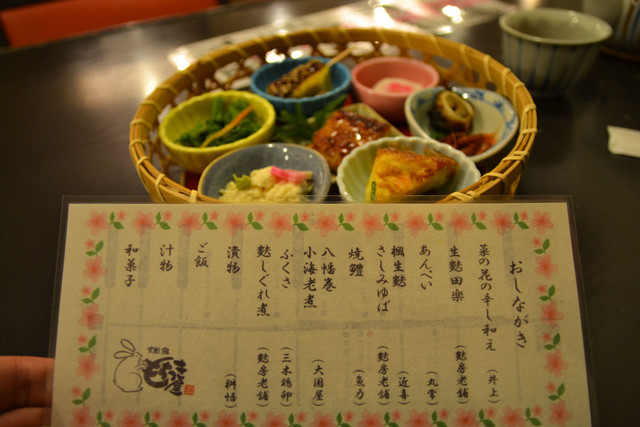 おしながき
菜の花の辛し和え
(井上)
生麩田楽
(麩房老舗)
あんぺい
(丸常)
楓生麩
(近喜)
さしみゆば
(麩房老舗)
焼鱧
(魚力)
八幡巻
小海老煮
(大国屋)
ふくさ
(三木鶏卵)
麩しぐれ煮
(麩房老舗)
漬物
(桝悟)
ご飯
汁物
和菓子